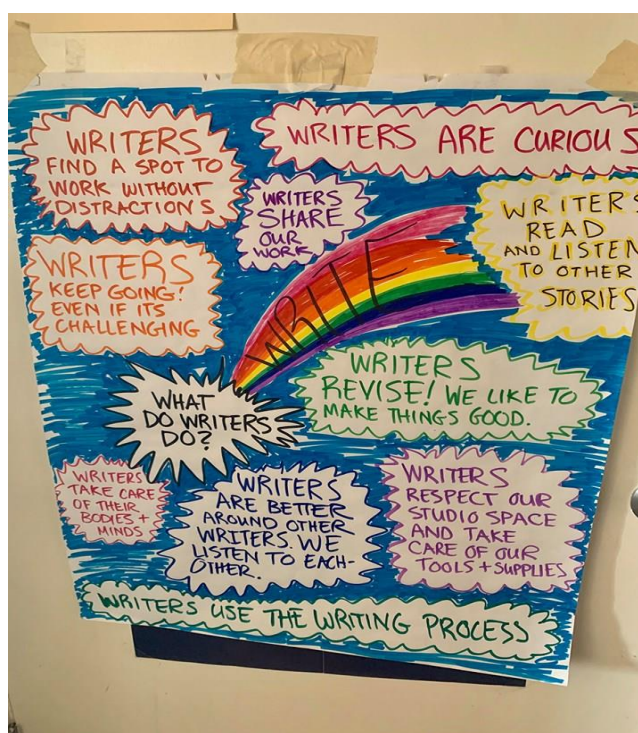 WRITERS
FIND A SPOT TO
WORK WITHOUT
DISTRACTIONS
WRITERS ARE CURIOUS
WRITERS
SHARE
OUR
WORK
WRITERS
READ
AND LISTEN
TO OTHER
STORIES
WRITERS
KEEP GOING!
EVEN IF ITS
CHALLENGING
WRITE
WRITERS
REVISE! WE LIKE TO
MAKE THINGS GOOD.
WHAT
DO WRITERS
DO?
WRITERS
TAKE CARE
OF THEIR
BODIES +
MINDS
WRITERS
ARE BETTER
AROUND OTHER
WRITERS. WE
LISTEN TO EACH-
OTHER.
WRITERS
RESPECT OUR
STUDIO SPACE
AND TAKE
CARE OF OUR
TOOLS + SUPPLIES
WRITERS USE THE WRITING PROCESS